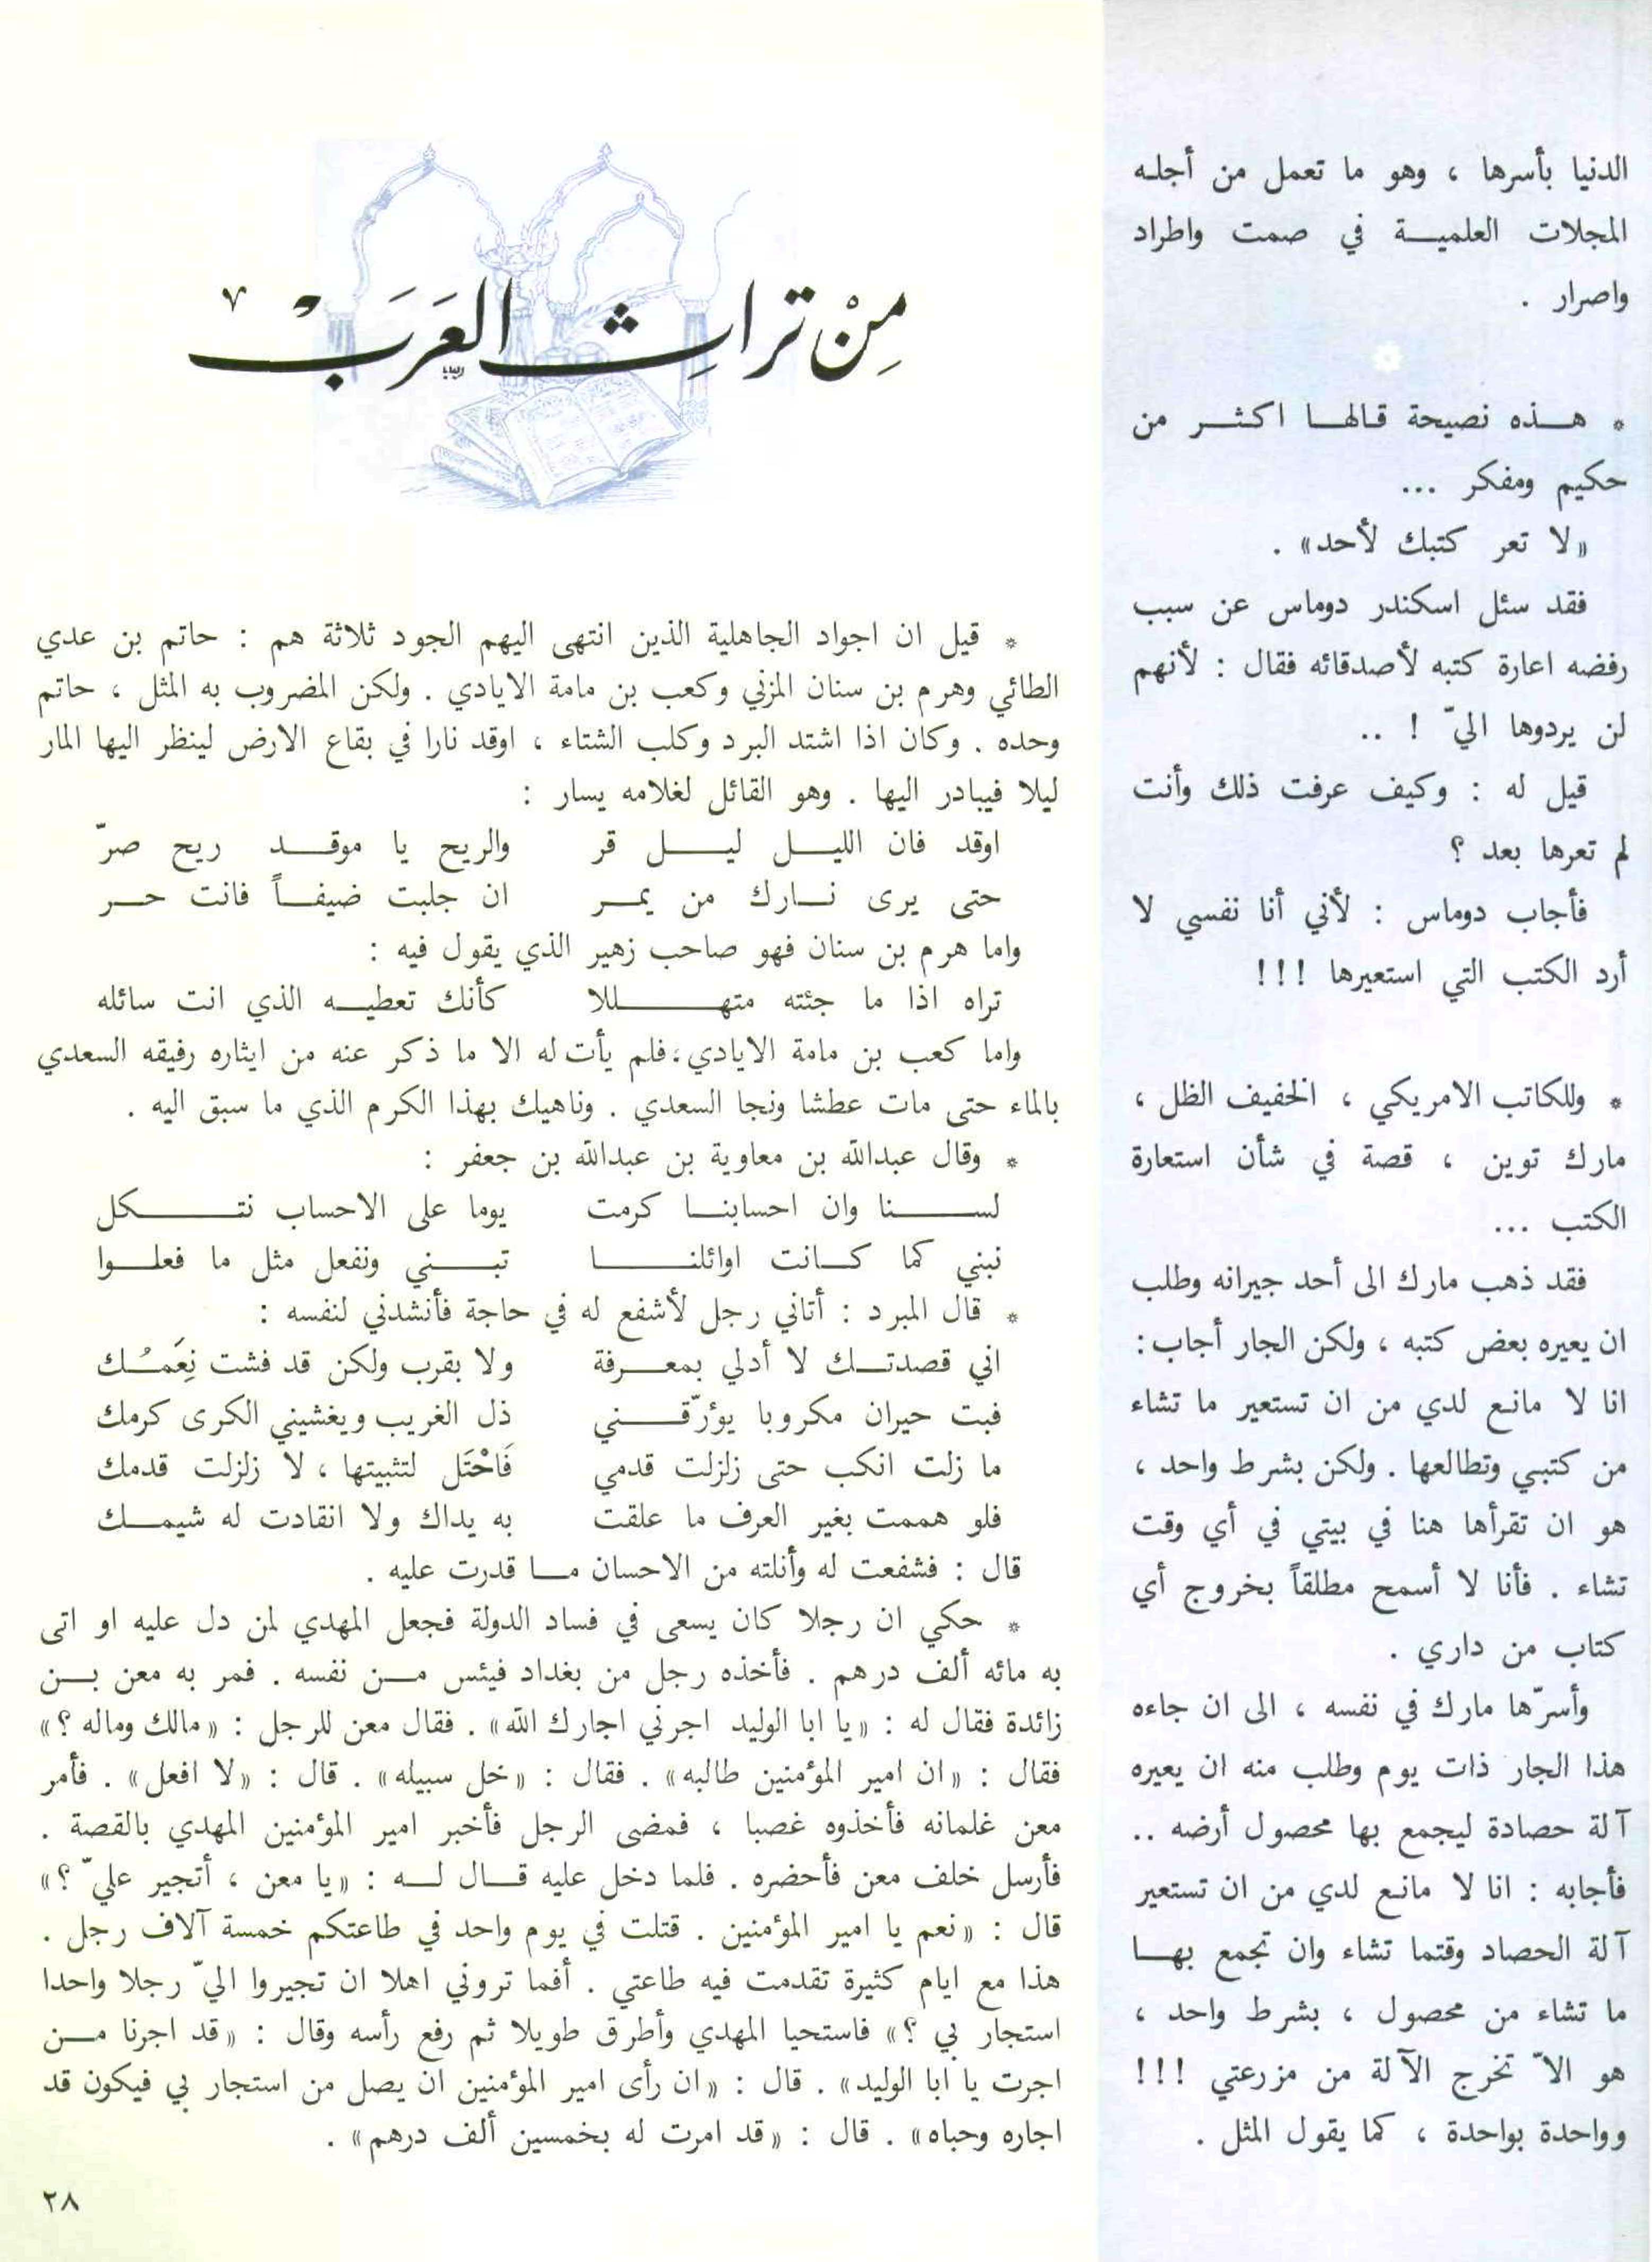 الدنيا بأسرها ، وهو ما تعمل من أجله
المجلات العلمية في صمت واطراد
واصرار .
* هذه نصيحة قالها اكثر من
حكيم ومفكر ...
«لا تعر كتبك لأحد» .
فقد سئل اسكندر دوماس عن سبب
رفضه اعارة كتبه لأصدقائه فقال : لأنهم
لن يردوها اليّ ! ..
قيل له : وكيف عرفت ذلك وأنت
لم تعرها بعد ؟
فأجاب دوماس : لأني أنا نفسي لا
أرد الكتب التي استعيرها !!!
* وللكاتب الامريكي ، الخفيف الظل ،
مارك توين ، قصة في شأن استعارة
الكتب ...
فقد ذهب مارك الى أحد جيرانه وطلب
ان يعيره بعض كتبه ، ولكن الجار أجاب :
انا لا مانع لدي من ان تستعير ما تشاء
من كتبي وتطالعها . ولكن بشرط واحد ،
هو ان تقرأها هنا في بيتي في أي وقت
تشاء . فأنا لا أسمح مطلقاً بخروج أي
كتاب من داري .
وأسرّها مارك في نفسه ، الى ان جاءه
هذا الجار ذات يوم وطلب منه ان يعيره
آلة حصادة ليجمع بها محصول أرضه ..
فأجابه : انا لا مانع لدي من ان تستعير
آلة الحصاد وقتما تشاء وان تجمع بها
ما تشاء من محصول ، بشرط واحد ،
هو الاّ تخرج الآلة من مزرعتي !!!
وواحدة بواحدة ، كما يقول المثل .
مِنْ تراثِ العَرَبْ
* قيل ان اجواد الجاهلية الذين انتهى اليهم الجود ثلاثة هم : حاتم بن عدي
الطائي وهرم بن سنان المزني وكعب بن مامة الايادي . ولكن المضروب به المثل ، حاتم
وحده . وكان اذا اشتد البرد وكلب الشتاء ، اوقد نارا في بقاع الارض لينظر اليها المار
ليلا فيبادر اليها . وهو القائل لغلامه يسار :
اوقد فان الليل ليل قر والريح يا موقد ريح صرّ
حتى يرى نارك من يمر ان جلبت ضيفاً فانت حر
واما هرم بن سنان فهو صاحب زهير الذي يقول فيه :
تراه اذا ما جئته متهللا كأنك تعطيه الذي انت سائله
واما كعب بن مامة الايادي ، فلم يأت له الا ما ذكر عنه من ايثاره رفيقه السعدي
بالماء حتى مات عطشا ونجا السعدي . وناهيك بهذا الكرم الذي ما سبق اليه .
* وقال عبدالله بن معاوية بن عبدالله بن جعفر :
لسنا وان احسابنا كرمت يوما على الاحساب نتكل
نبني كما كانت اوائلنا تبني ونفعل مثل ما فعلوا
* قال المبرد : أتاني رجل لأشفع له في حاجة فأنشدني لنفسه :
اني قصدتك لا أدلي بمعرفة ولا بقرب ولكن قد فشت نِعَمُك
فبت حيران مكروبا يؤرّقني ذل الغريب ويغشيني الكرى كرمك
ما زلت انكب حتى زلزلت قدمي فَاحْتَل لتثبيتها ، لا زلزلت قدمك
فلو هممت بغير العرف ما علقت به يداك ولا انقادت له شيمك
قال : فشفعت له وأنلته من الاحسان ما قدرت عليه .
* حكي ان رجلا كان يسعى في فساد الدولة فجعل المهدي لمن دل عليه او اتى
به مائه ألف درهم . فأخذه رجل من بغداد فيئس من نفسه . فمر به معن بن
زائدة فقال له : «يا ابا الوليد اجرني اجارك الله» . فقال معن للرجل : «مالك وماله ؟»
فقال : «ان امير المؤمنين طالبه» . فقال : «خل سبيله» . قال : «لا افعل» . فأمر
معن غلمانه فأخذوه غصبا ، فمضى الرجل فأخبر امير المؤمنين المهدي بالقصة .
فأرسل خلف معن فأحضره . فلما دخل عليه قال له : «يا معن ، أتجير عليّ ؟»
قال : «نعم يا امير المؤمنين . قتلت في يوم واحد في طاعتكم خمسة آلاف رجل .
هذا مع ايام كثيرة تقدمت فيه طاعتي . أفما تروني اهلا ان تجيروا اليّ رجلا واحدا
استجار بي ؟» فاستحيا المهدي وأطرق طويلا ثم رفع رأسه وقال : «قد اجرنا من
اجرت يا ابا الوليد» . قال : «ان رأى امير المؤمنين ان يصل من استجار بي فيكون قد
اجاره وحباه» . قال : «قد امرت له بخمسين ألف درهم» .
٢٨